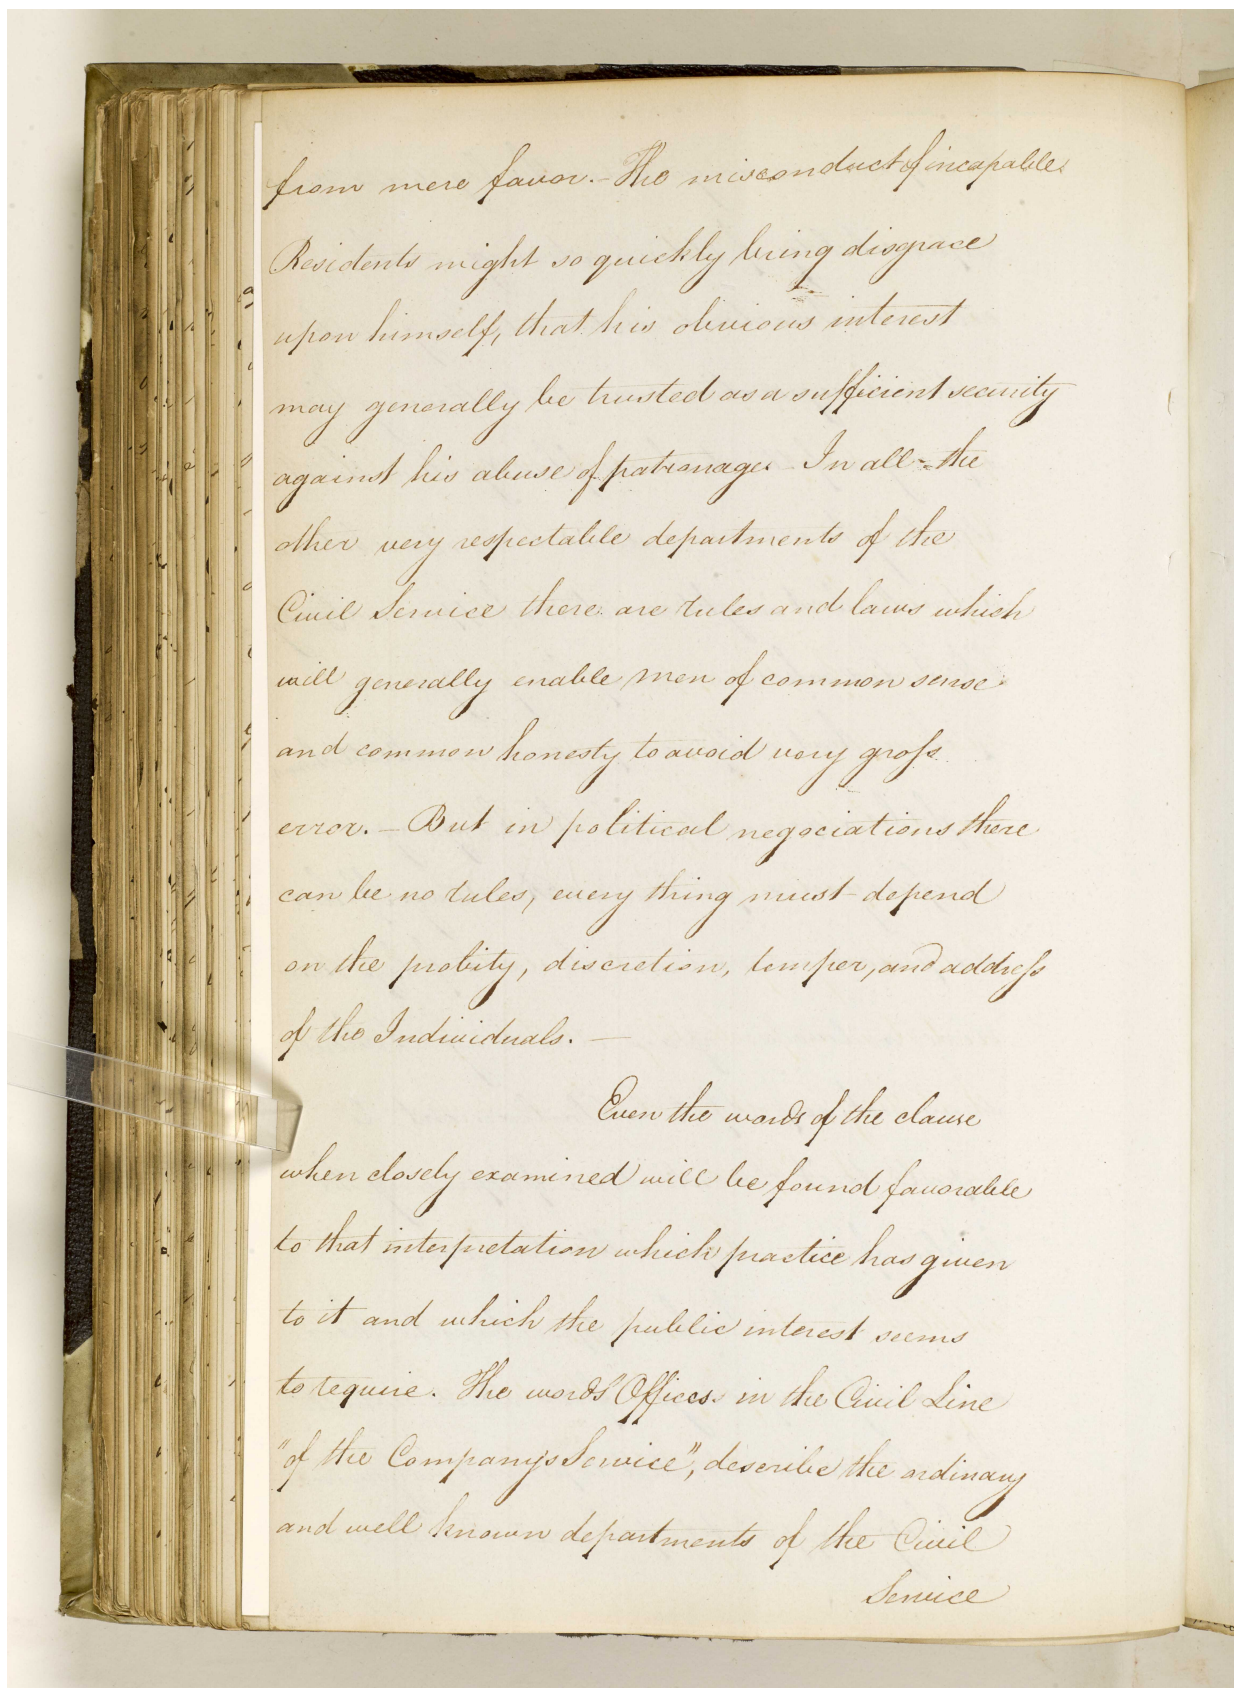 from mere favor. – The misconduct of incapable
Residents might so quickly bring disgrace
upon himself, that his obvious interest
may generally be trusted as a sufficient security
against his abuse of patronage. In all the
other very respectable departments of the
Civil Service there are rules and laws which
will generally enable men of common sense
and common honesty to avoid very groſs
error. – But in political negociations there
can be no rules, every thing must depend
on the probity, discretion, temper, and addreſs
of the Individuals. —
Even the words of the clause
when closely examined will be found favorable
to that interpretation which practice has given
to it and which the public interest seems
to require. The words "Offices in the Civil Line
"of the Company's Service", describe the ordinary
and well known departments of the Civil
Service